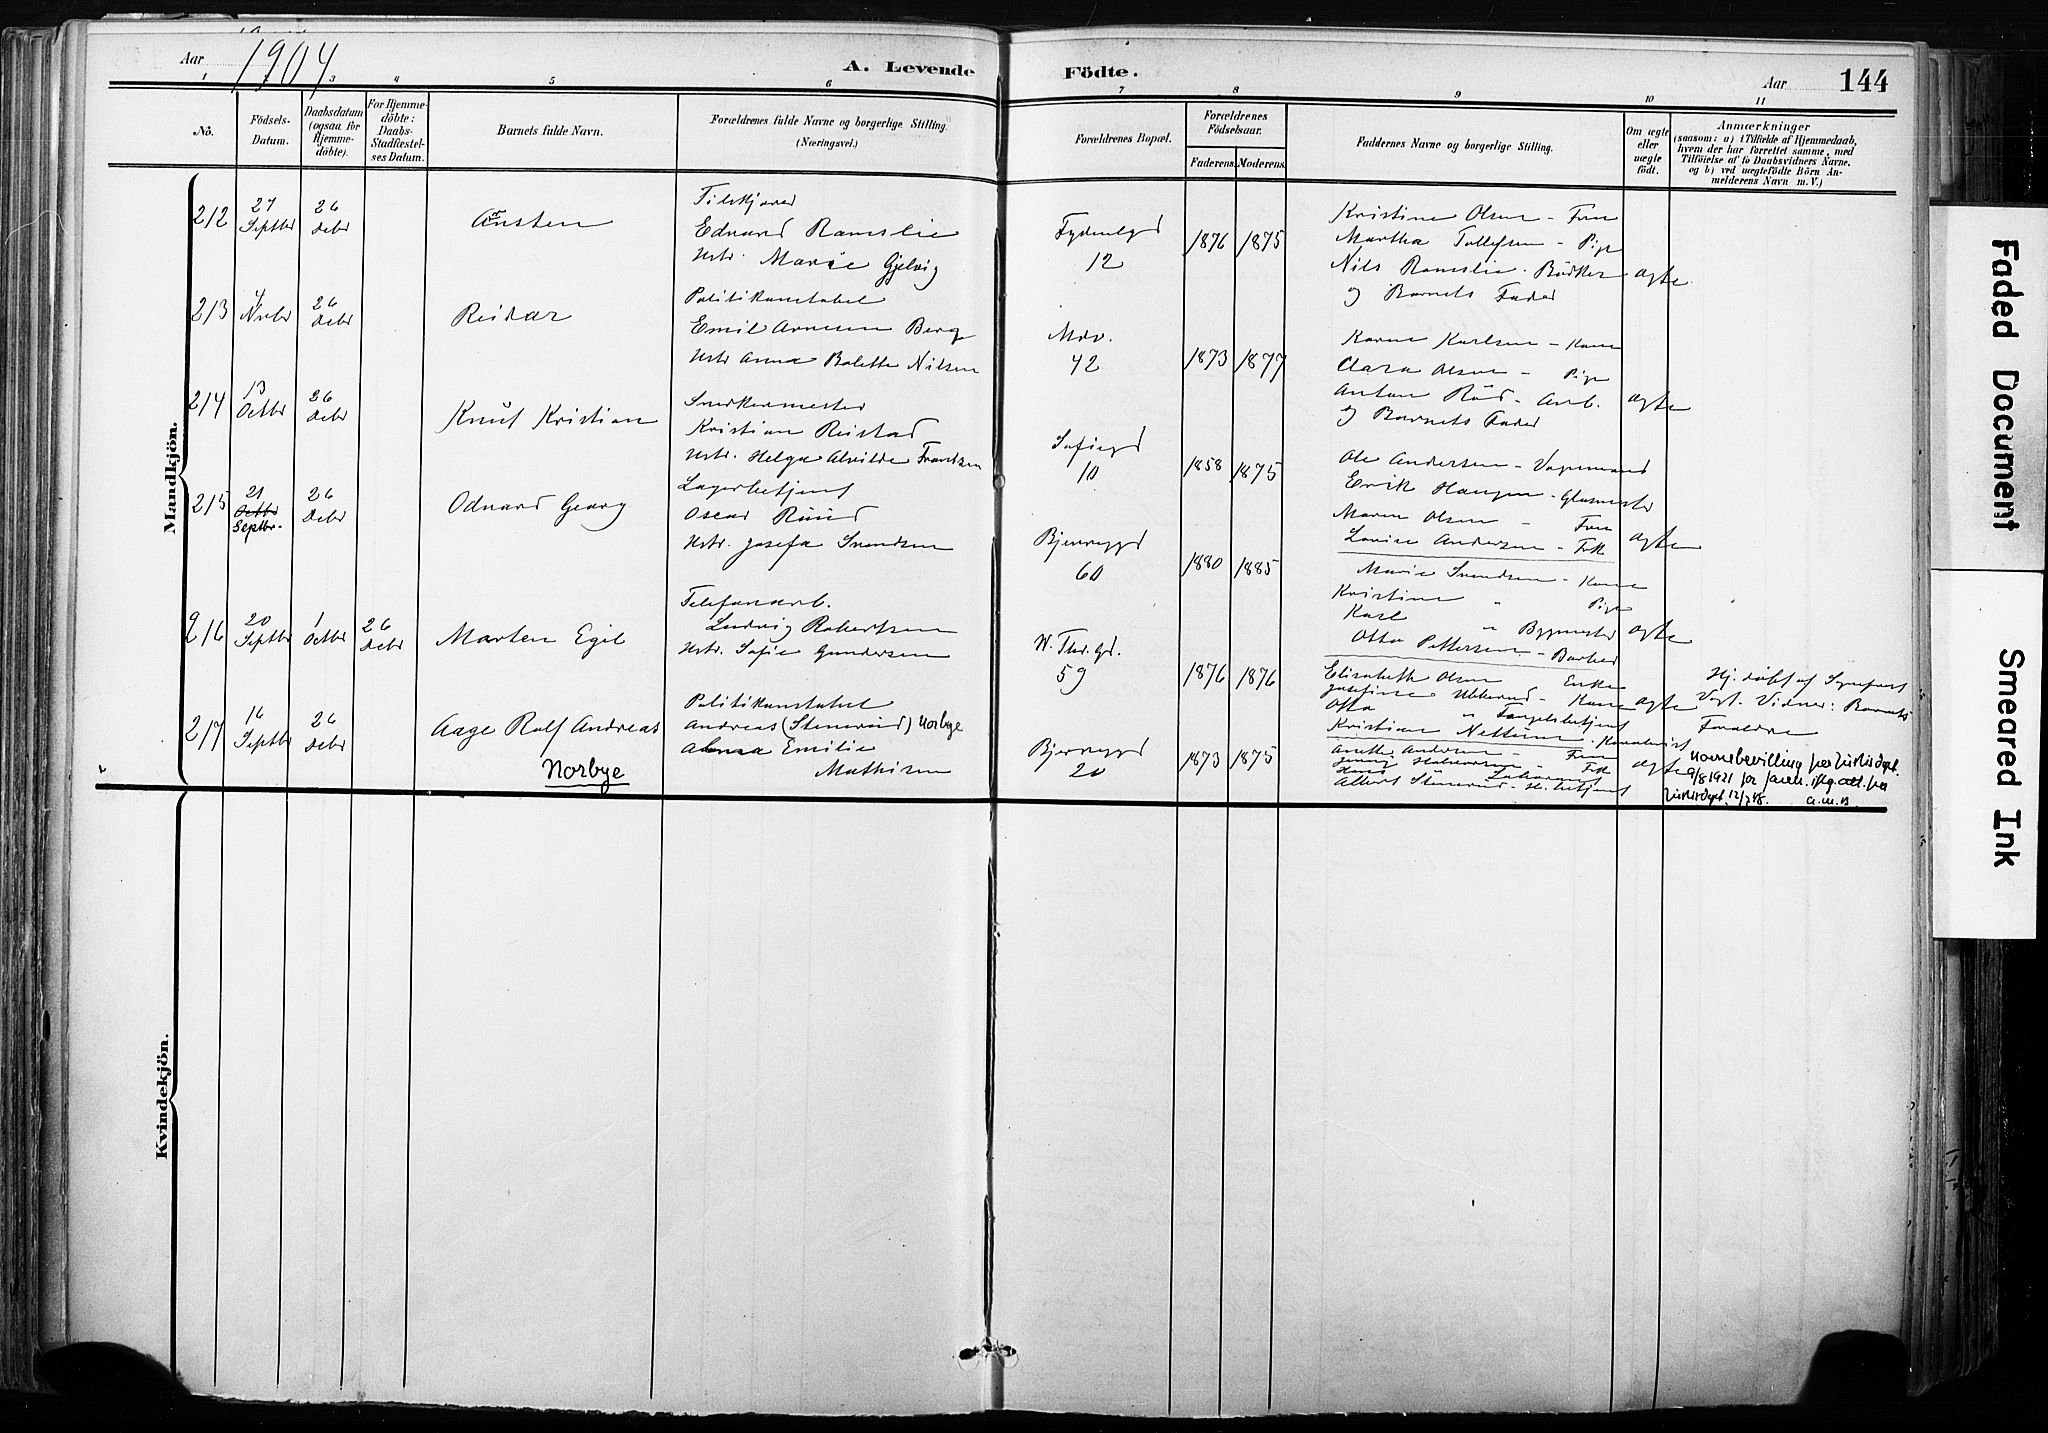 Aar 1904
A. Levende Födte.
Aar
144
1 3 4 5 6 7 8 9 10 11
No.
Födsels-Datum.
Daabsdatum (ogsaa for Hjemme-döbte).
For Hjemme-döbte: Daabs-Stadfæstel-ses Datum.
Barnets fulde Navn.
Forældrenes fulde Navne og borgerlige Stilling.
(Næringsvei.)
Forældrenes Bopæl.
Forældrenes Födselsaar.
Faderens. Moderens.
Faddernes Navne og borgerlige Stilling.
Om ægte eller uægte födt.
Anmærkninger
(saasom: a) i Tilfælde af Hjemmedaab, hvem der har forrettet samme, med Tilföielse af to Daabsvidners Navne, og b) ved uægtefödte Börn An-melderens Navn m. V.)
Mandkjön.
212 27 Septbr 26 Debr
Tilskjærer
Edvard Ramslie
Hstr. Marie Gjelvig
12
1876 1875
Kristine Olsen - Frue
Martha Tollefsen - Pige
Nils Ramslie - Bödker
og Barnets Fader
ægte
213 4 Nvbr 26 Debr
Reidar
Politikonstabel
Emil Arnesen Berg
Hstr Anna Bolette Nilsen
42
1873 1877
Karen Karlsen - Kone
Clara Olsen - Pige
Anton Röd - Arb.
og Barnets Fader
ægte
214 13 Octbr 26 Debr
Knut Kristian
Snedkermester
Kristian Reistad
Hstr. Helga Alvilde Frandsen
Sofiegd
10
1858 1875
Ole Andersen - Vognmand
Erik Haugen - Glasmester
Maren Olsen - Frue
Lovise Andersen - Frk
ægte
215 21 Octbr Septbr. 26 Debr
Odvard Georg
Lagerbetjent
Oscar Ruud
Hstr. Josefa Svendsen
Bjerreggd
60
1880 1885
Marie Svendsen - Kone
Kristine " Pige
Karl " Bygmester
Otto Pettersen - Barber
ægte
216 20 Septbr 1 Octbr 26 Debr
Morten Egil
Telefonarb.
Ludvig Robertsen
Hstr. Sofie Gundersen
W. Thr. Gd.
59
1876 1876
Elisabeth Olsen Enke
Josefine Ukkerud - Kone
Otto " Fængselsbetjent
Kristian Nettum -
ægte
Hj. döbt af Jomfru
Vogt. Vidner: Barnets
Forældre
217 16 Septbr 26 Debr
Aage Rolf Andreas
Norbye
Politikonstabel
Andreas (Stenerud) Norbye
Alma Emilie
Mathisen
Bjerreggd
20
1873 1875
Anette Andersen - Frue
Jenny Halvorsen - Frk
Hans
Albert Stenerud -
ægte
Navnebevilling fra Justisdept.
9/8 1921 for faren. Iflg. att. fra
Justisdept. 12/7 48. A.M.B.
Kvindekjön.
Faded Document
Smeared Ink